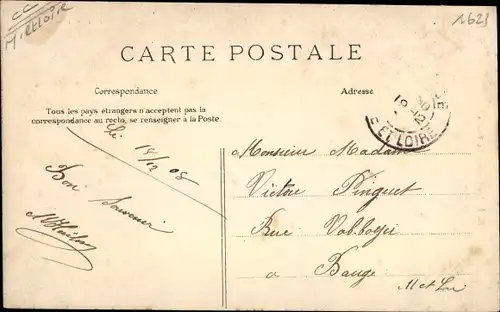 CC
M-et-Loire
1623
CARTE POSTALE
Correspondance
Adresse
Tous les pays étrangers n'acceptent pas la
correspondance au recto, se renseigner à la Poste.
Le 18/12 08
Bon Souvenir
E ET LOIRE
Monsieur Madame
Victor Pinguet
Rue
a Baugé
M et Loi